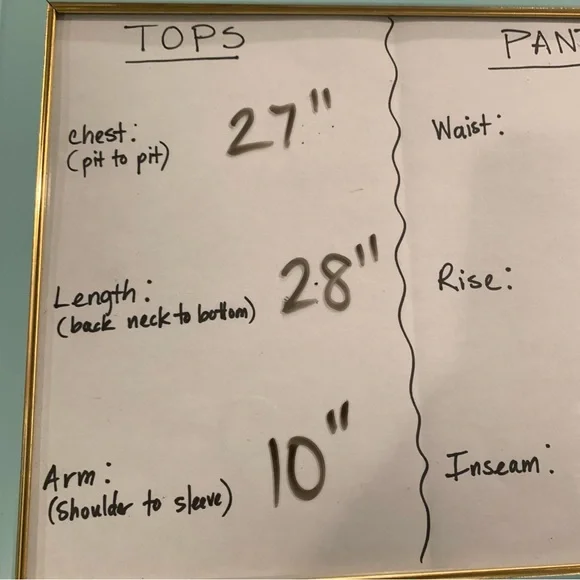 TOPS
chest: 27"
(pit to pit)
Length: 28"
(back neck to bottom)
Arm: 10"
(shoulder to sleeve)
PAN
Waist:
Rise:
Inseam: